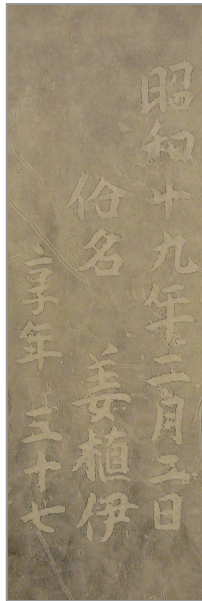 昭和十九年二月二日
俗名 姜植伊
享年 三十七